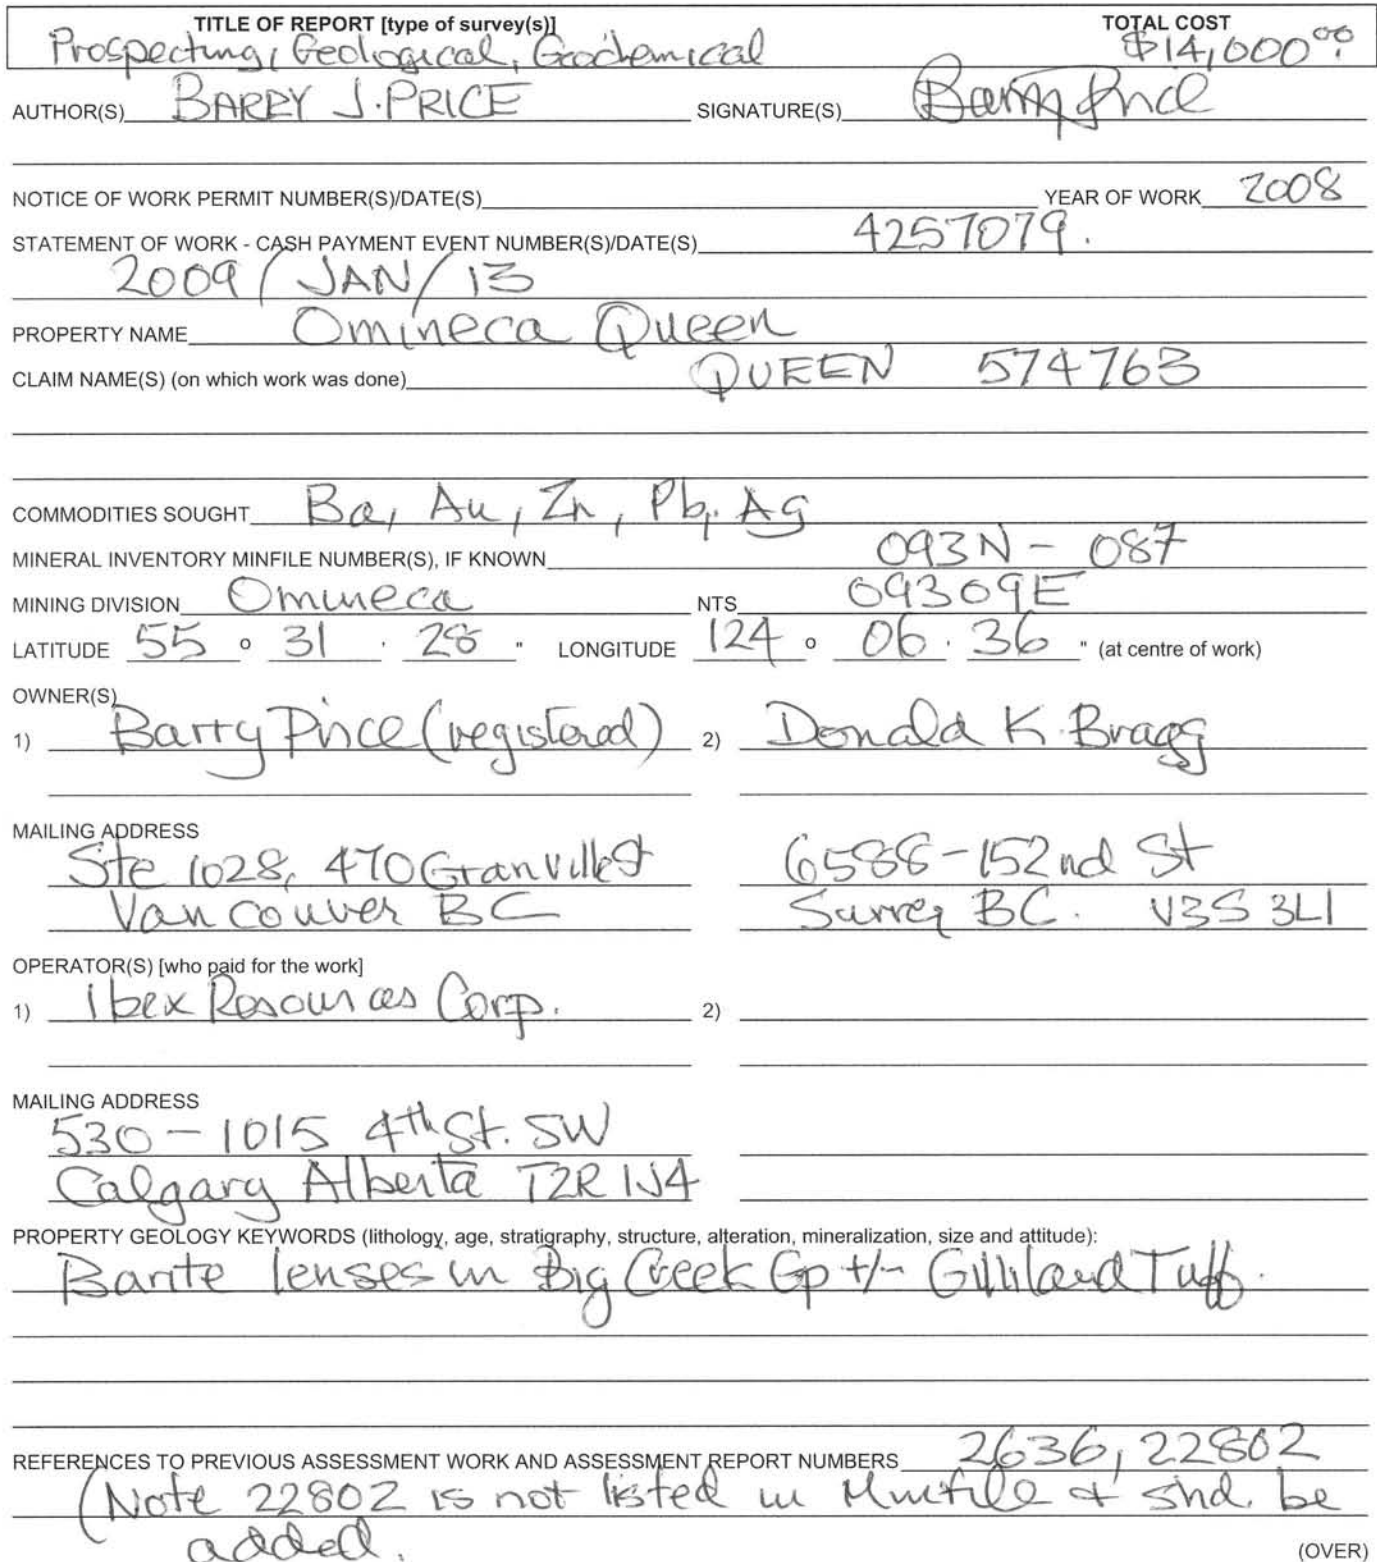 TITLE OF REPORT [type of survey(s)] TOTAL COST
Prospecting, Geological, Geochemical $14,000.00
AUTHOR(S) BARRY J. PRICE SIGNATURE(S) Barry Price
NOTICE OF WORK PERMIT NUMBER(S)/DATE(S) YEAR OF WORK 2008
STATEMENT OF WORK - CASH PAYMENT EVENT NUMBER(S)/DATE(S) 4257079.
2009/JAN/13
PROPERTY NAME Omineca Queen
CLAIM NAME(S) (on which work was done) QUEEN 574763
COMMODITIES SOUGHT Ba, Au, Zn, Pb, Ag
MINERAL INVENTORY MINFILE NUMBER(S), IF KNOWN 093N - 087
MINING DIVISION Omineca NTS 09309E
LATITUDE 55 ° 31 ' 28 " LONGITUDE 124 ° 06 ' 36 " (at centre of work)
OWNER(S)
1) Barry Price (registered) 2) Donald K. Bragg
MAILING ADDRESS
Ste 1028, 470 Granville St 6588-152nd St
Vancouver BC Surrey BC. V3S 3L1
OPERATOR(S) [who paid for the work]
1) Ibex Resources Corp. 2)
MAILING ADDRESS
530 - 1015 4th St. SW
Calgary Alberta T2R 1J4
PROPERTY GEOLOGY KEYWORDS (lithology, age, stratigraphy, structure, alteration, mineralization, size and attitude):
Barite lenses in Big Creek Gp +/- Gilliland Tuff.
REFERENCES TO PREVIOUS ASSESSMENT WORK AND ASSESSMENT REPORT NUMBERS 2636, 22802
(Note 22802 is not listed in Minfile & shd. be
added.
(OVER)